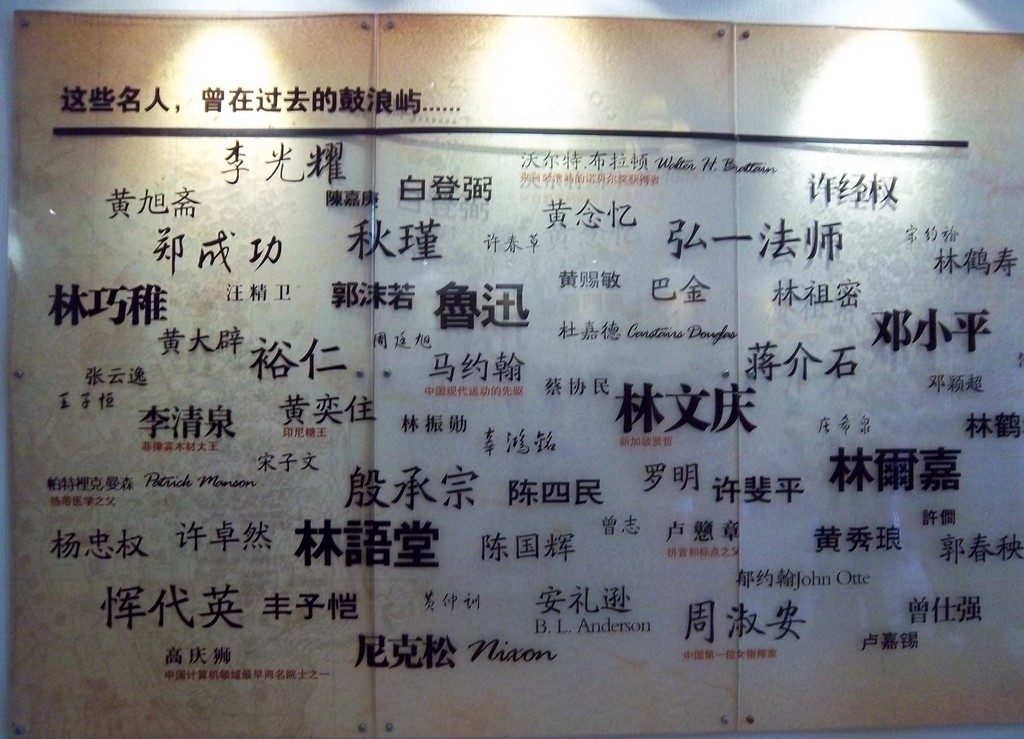 这些名人，曾在过去的鼓浪屿......
李光耀
沃尔特.布拉顿 Walter H. Brattain
黄旭斋
陳嘉庚
白登弼
许经权
黄念忆
郑成功
秋瑾
许春草
弘一法师
林鹤寿
林巧稚
汪精卫
郭沫若
魯迅
黄赐敏
巴金
林祖密
邓小平
黄大辟
裕仁
周廷旭
杜嘉德 Carstairs Douglas
蒋介石
张云逸
马约翰
中国现代运动的先驱
蔡协民
邓颖超
王子恒
李清泉
菲律宾木材大王
黄奕住
印尼糖王
林振勋
辜鸿銘
林文庆
新加坡贤哲
林鹤
宋子文
帕特裡克.曼森 Patrick Manson
热带医学之父
殷承宗
陈四民
罗明
许斐平
林爾嘉
杨忠权
许卓然
林語堂
陈国辉
曾志
卢戆章
拼音和标点之父
黄秀琅
許僴
郭春秧
郁约翰John Otte
恽代英
丰子恺
黄仲训
安礼逊
B. L. Anderson
周淑安
中国第一位女指挥家
曾仕强
卢嘉锡
高庆狮
中国计算机领域最早两名院士之一
尼克松 Nixon